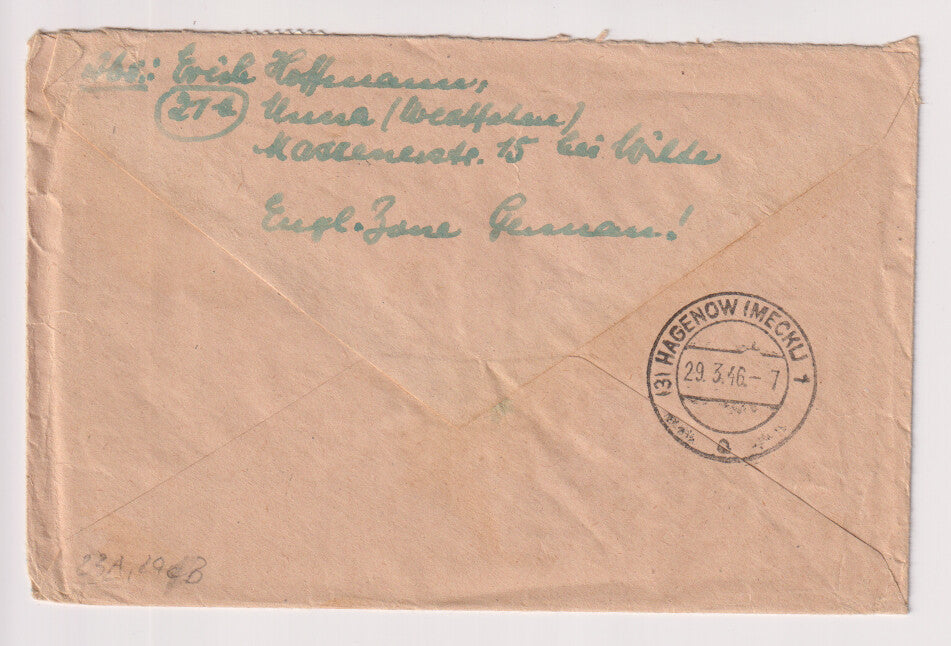 Abs.: Erich Hoffmann,
(21a) Unna (Westfalen)
Massenerstr. 15 bei Wilde
Engl. Zone German!
(3) HAGENOW (MECKL) 1
29.3.46.-7
a
23A, 19